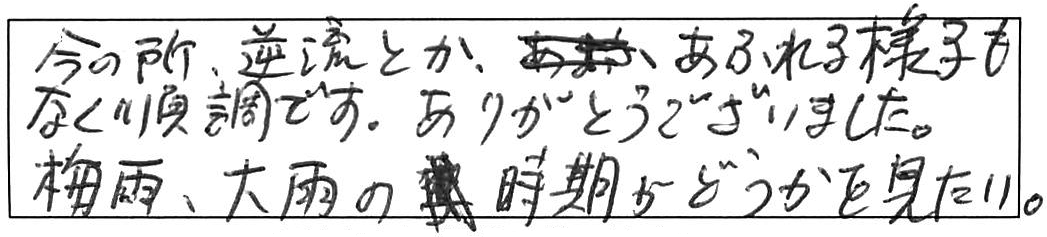 今の所、逆流とか、あふれる様子も
なく順調です。ありがとうございました。
梅雨、大雨の時期がどうかを見たい。